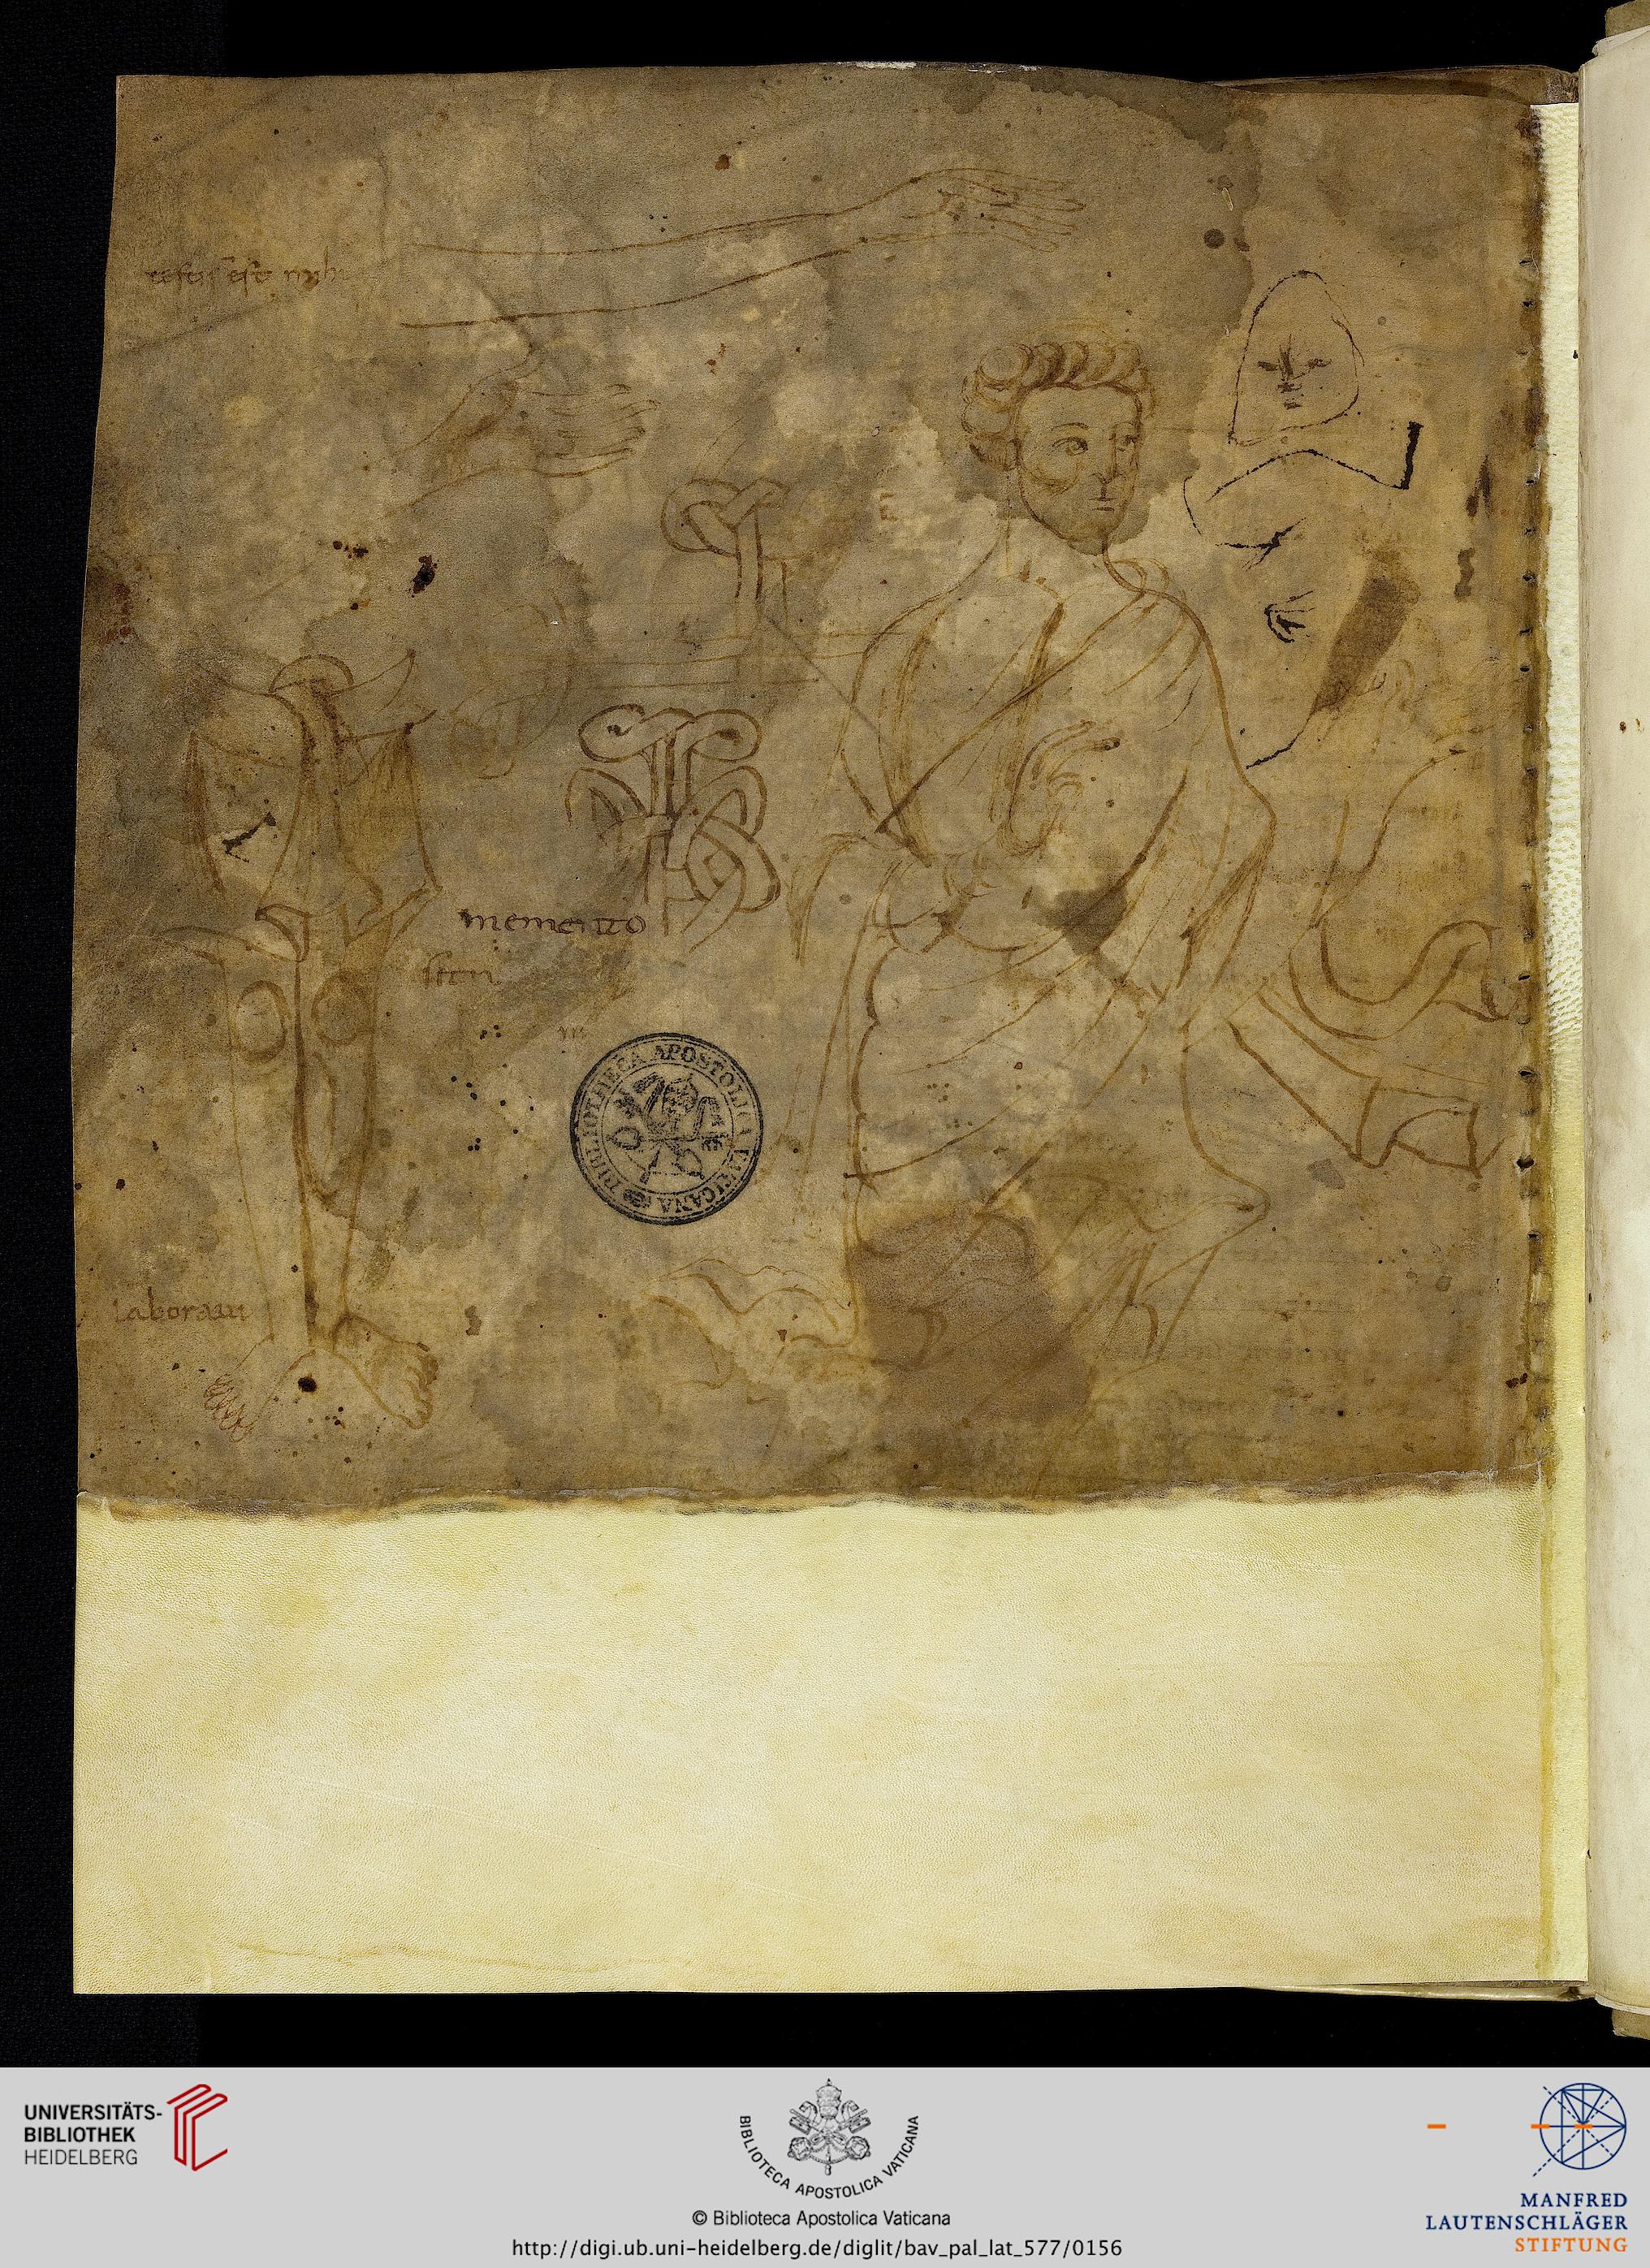 testis est mihi
memento
laboraui
BIBLIOTHECA APOSTOLICA VATICANA
UNIVERSITÄTS-
BIBLIOTHEK
HEIDELBERG
BIBLIOTECA APOSTOLICA VATICANA
© Biblioteca Apostolica Vaticana
http://digi.ub.uni-heidelberg.de/diglit/bav_pal_lat_577/0156
MANFRED
LAUTENSCHLÄGER
STIFTUNG